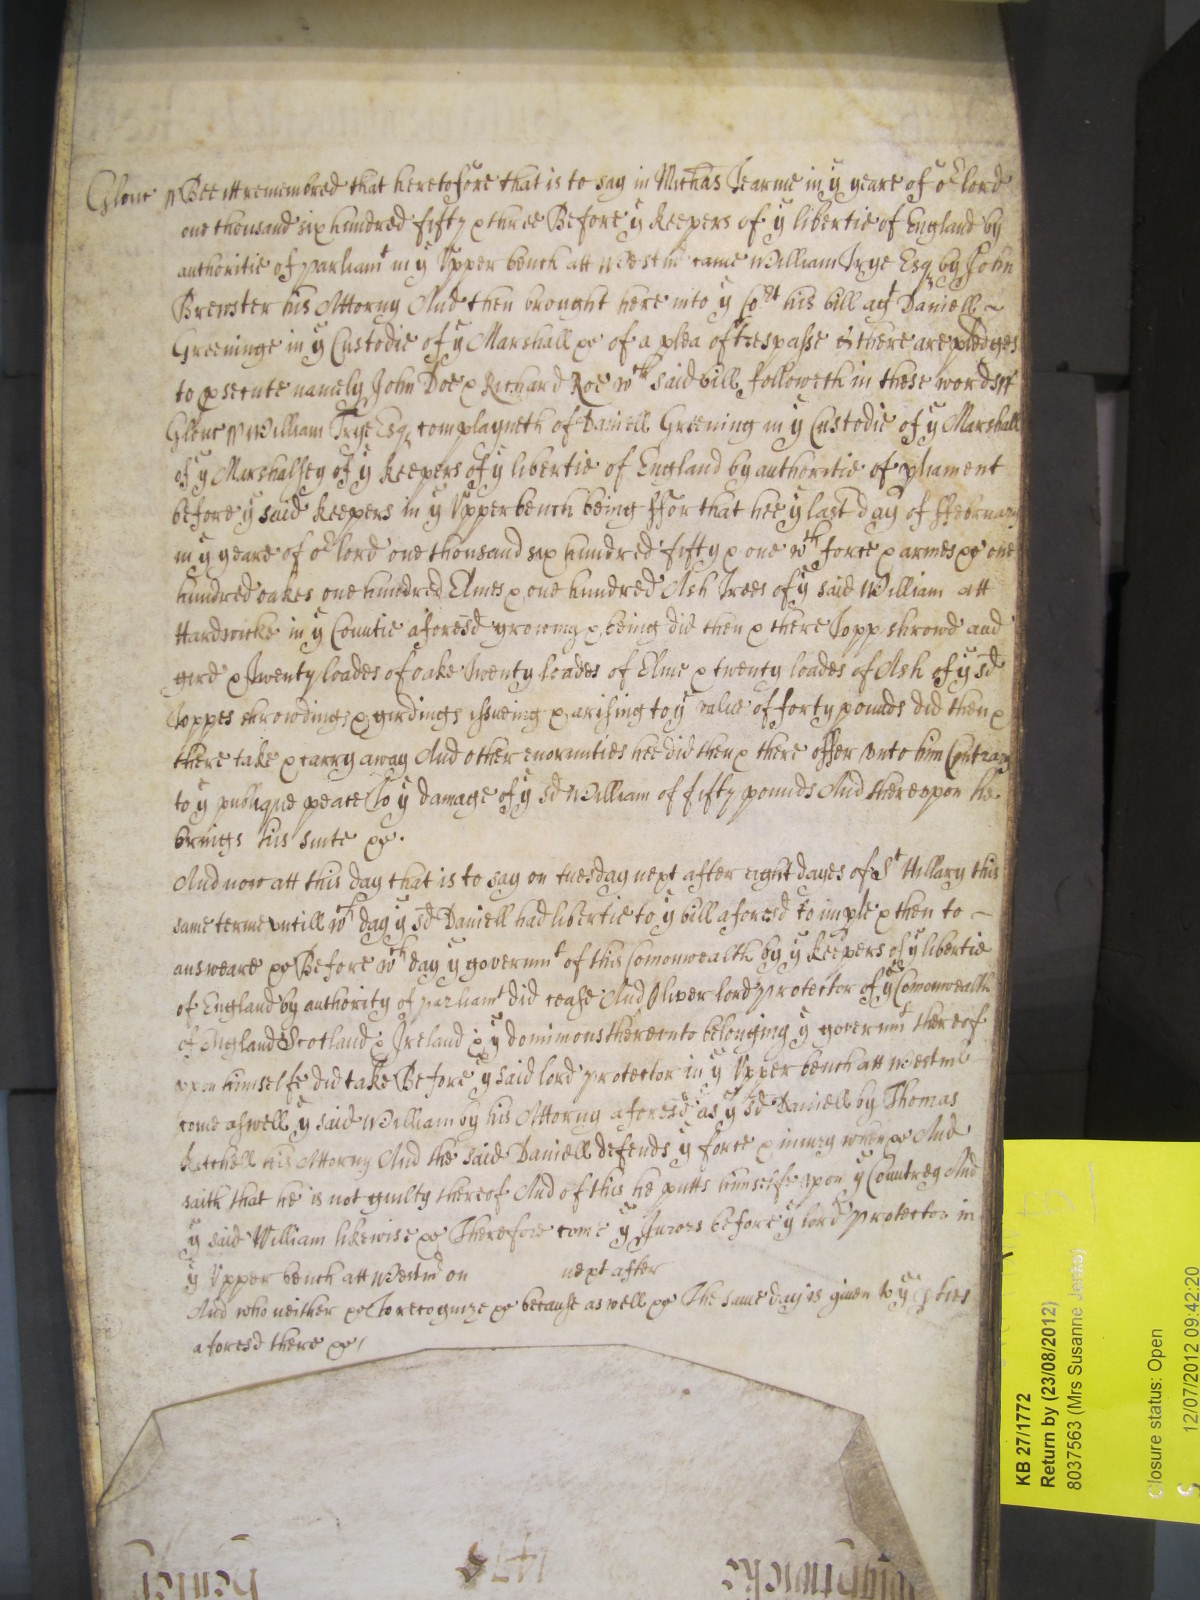 Glouc ss Bee itt remembred that heretofore that is to say in Michas Tearme in ye yeare of or lord
one thousand six hundred fifty & three Before ye keepers of ye libertie of England by
authoritie of parliamt in ye Upper bench att Westmr came William Trye Esq by John
Brewster his Attorny And then brought here into ye Cort his bill agt Daniell ~
Greeninge in ye Custodie of ye Marshall &c of a plea of trespasse & there are pledges
to psecute namely John Doe & Richard Roe wch said bill followeth in these words ss
Glouc ss William Trye Esq complayneth of Daniell Greening in ye Custodie of ye Marshall
of ye Marshalsey of ye keepers of ye libertie of England by authoritie of pliament
before ye said keepers in ye Upper bench being ffor that hee ye last day of ffebruary
in ye yeare of or lord one thousand six hundred fifty & one wth force & armes &c one
hundred oakes one hundred Elmes & one hundred Ash Trees of ye said William att
Hardwicke in ye Countie aforesd growing & being did then & there Topp shrowd and
gird & Twenty loades of oake Twenty loades of Elme & twenty loades of Ash of ye sd
Toppes shrowdings & girdings issueing & arising to ye value of forty pounds did then &
there take & carry away And other enormities hee did then & there offer unto him Contrary
to ye publique peace To ye damage of ye sd William of fifty pounds And thereupon he
brings his suite &c.
And now att this day that is to say on tuesday next after eight dayes of St Hillary this
same terme untill wch day ye sd Daniell had libertie to ye bill aforesd to imple & then to ~
answeare &c Before wch day ye governmt of this Comonwealth by ye keepers of ye libertie
of England by authority of parliamt did cease And Oliver lord Protector of ye Comonwealth
of England Scotland & Ireland & ye dominions thereunto belonging ye governmt thereof
upon himselfe did take Before ye said lord Protector in ye Upper bench att Westmr
come aswell ye said William by his Attorny aforesd as ye sd Daniell by Thomas
Ketchell his Attorny And the said Daniell defends ye force & iniury when &c And
saith that he is not guilty thereof And of this he putts himselfe upon ye Countrey And
ye said William likewise &c Therefore come ye Jurors before ye lord Protector in
ye Upper bench att Westmr on next after
And who neither &c To recognize &c because as well &c The same day is given to ye pties
aforesd there &c
KB 27/1772
Return by (23/08/2012)
8037563 (Mrs Susanne Jerks)
Closure status: Open
12/07/2012 09:42:20